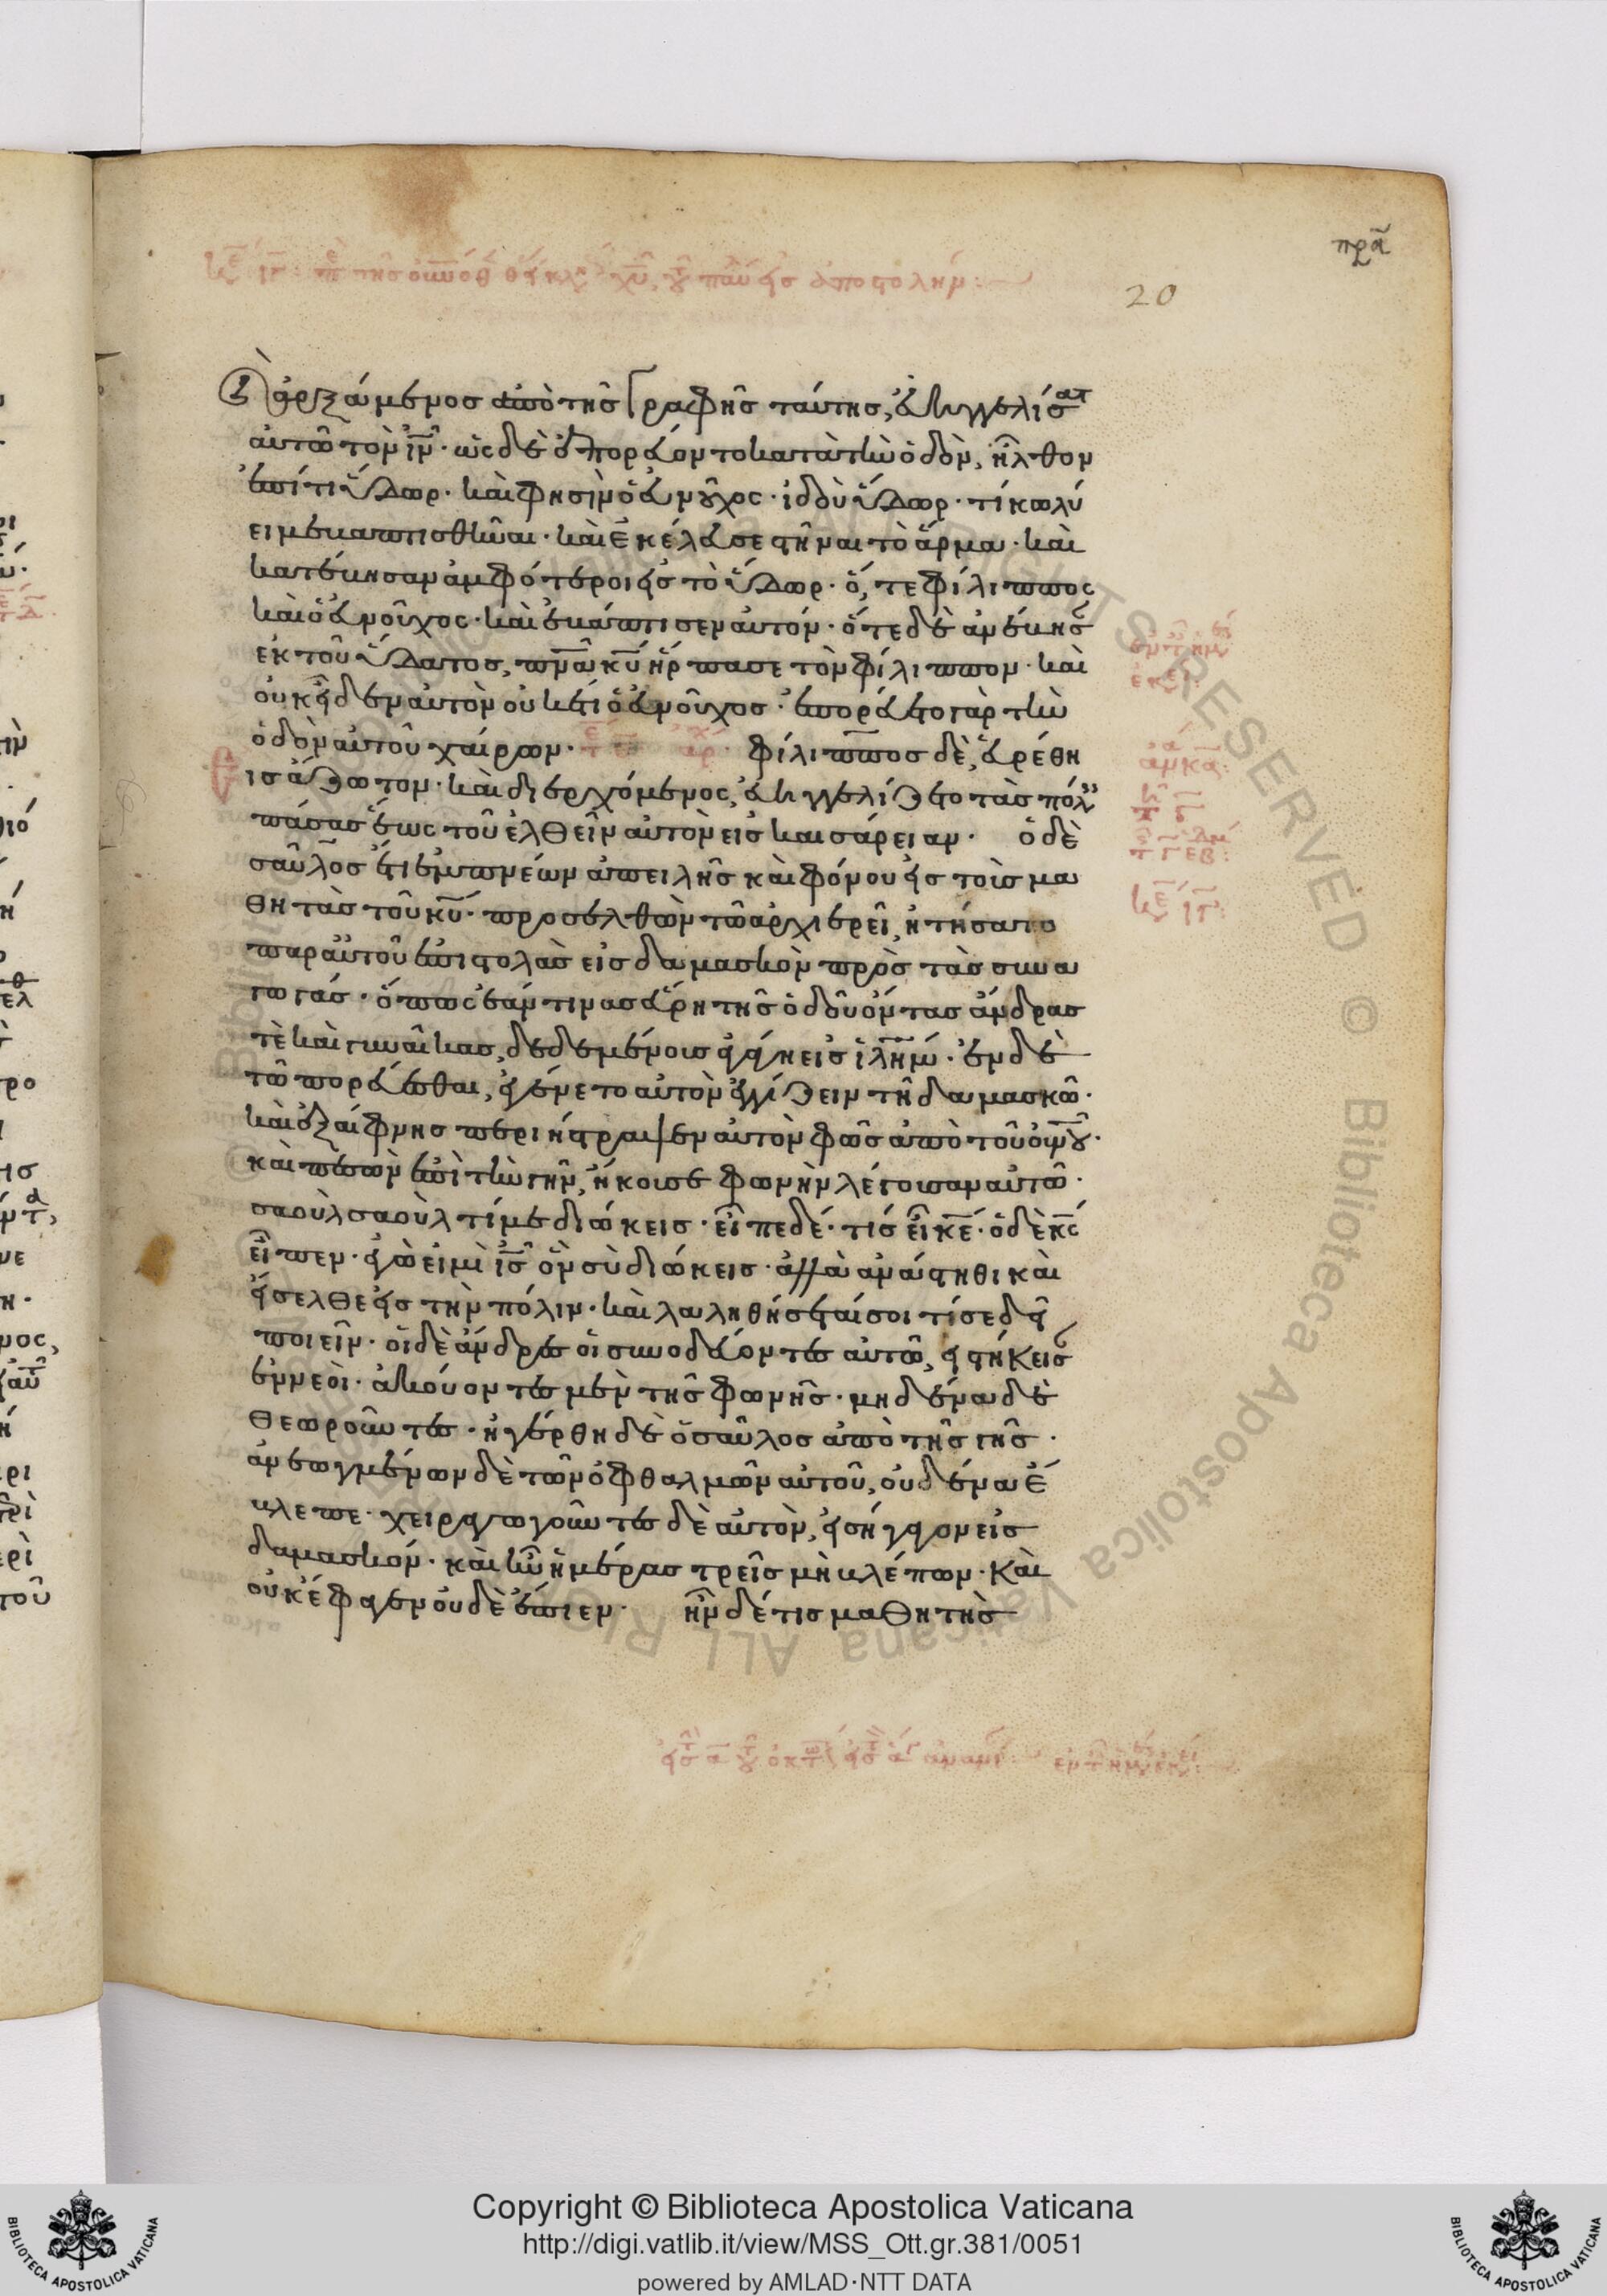 πρα
20
ἀρξάμενος ἀπὸ τῆς γραφῆς ταύτης, εὐηγγελίσατ
αὐτῶ τὸν ιν· ὡς δὲ ἐπορεύοντο κατὰ τὴν ὁδὸν, ἦλθον
ἐπί τι ὕδωρ· καὶ φησὶν ὁ εὐνοῦχος· ἰδοὺ ὕδωρ· τί κωλύ
ει με βαπτισθῆναι· καὶ ἐκέλευσε στῆναι τὸ ἅρμα· καὶ
κατέβησαν ἀμφότεροι εἰς τὸ ὕδωρ· ὅ, τε φίλιππος
καὶ ὁ εὐνοῦχος· καὶ ἐβάπτισεν αὐτόν· ὅτε δὲ ἀνέβησ
ἐκ τοῦ ὕδατος, πνα κυ ἥρπασε τὸν φίλιππον· καὶ
οὐκ εἶδεν αὐτὸν οὐκέτι ὁ εὐνοῦχος· ἐπορεύετο γὰρ τὴν
ὁδὸν αὐτοῦ χαίρων· φίλιππος δὲ, εὑρέθη
ις ἄζωτον· καὶ διερχόμενος, εὐηγγελίζετο τὰς πόλ
πάσας ἕως τοῦ ἐλθεῖν αὐτὸν εἰς καισάρειαν· ὁ δὲ
σαῦλος ἔτι ἐμπνέων ἀπειλῆς καὶ φόνου εἰς τοὺς μα
θητὰς τοῦ κυ· προσελθὼν τῶ ἀρχιερεῖ, ἠτήσατο
παρ αὐτοῦ ἐπιστολὰς εἰς δαμασκὸν πρὸς τὰς συνα
γωγάς· ὅπως ἐάν τινας εὕρη τῆς ὁδοῦ ὄντας ἄνδρας
τὲ καὶ γυναῖκας, δεδεμένους ἀγάγη εἰς ἱλημ· ἐν δὲ
τῶ πορεύεσθαι, ἐγένετο αὐτὸν ἐγγίζειν τῆ δαμασκῶ·
καὶ ἐξαίφνης περιήστραψεν αὐτὸν φῶς ἀπὸ τοῦ οὐνου·
καὶ πεσὼν ἐπὶ τὴν γῆν, ἤκουσε φωνὴν λέγουσαν αὐτῶ·
σαοὺλ σαοὺλ τί με διώκεις· εἶπε δέ· τίς εἶ κε· ὁ δὲ κς
εἶπεν· ἐγὼ εἰμὶ ις ὃν σὺ διώκεις· ἀλλὰ ἀνάστηθι καὶ
εἴσελθε εἰς τὴν πόλιν· καὶ λαληθήσεταί σοι τί σε δεῖ
ποιεῖν· οἱ δὲ ἄνδρες οἱ συνοδεύοντες αὐτῶ, εἱστήκεισ
ἐννεοὶ· ἀκούοντες μὲν τῆς φωνῆς· μηδένα δὲ
θεωροῦντες· ἠγέρθη δὲ ὁ σαῦλος ἀπὸ τῆς γῆς·
ἀνεωγμένων δὲ τῶν ὀφθαλμῶν αὐτοῦ, οὐδένα ἔ
βλεπε· χειραγωγοῦντες δὲ αὐτὸν, εἰσήγαγον εἰς
δαμασκόν· καὶ ἦν ἡμέρας τρεῖς μὴ βλέπων· καὶ
οὐκ ἔφαγεν οὐδὲ ἔπιεν· ἦν δέ τις μαθητὴς
Copyright © Biblioteca Apostolica Vaticana
http://digi.vatlib.it/view/MSS_Ott.gr.381/0051
powered by AMLAD·NTT DATA